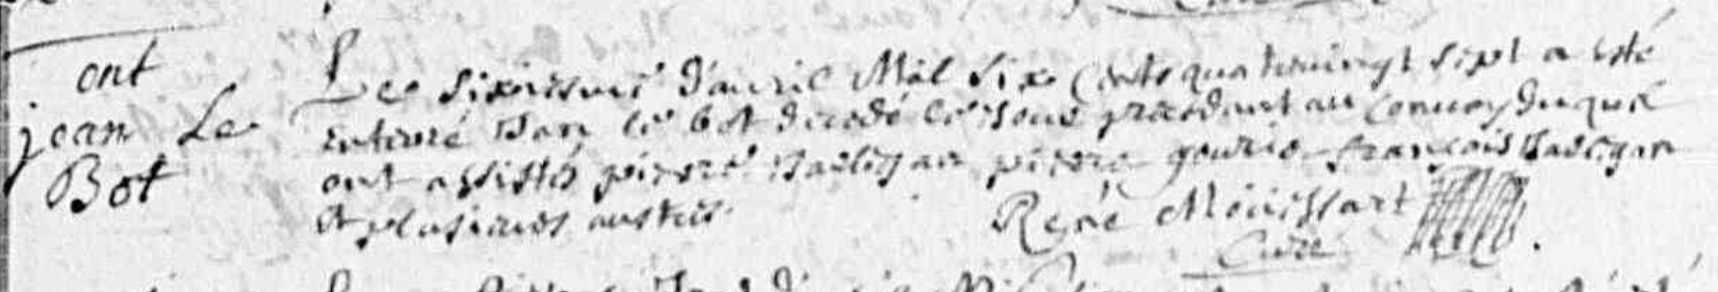 ont
jean Le
Bot
Le sixiesme d'auril Mil six Cents quatreuingt sept a esté
enterré Jan le bot decedé le Jour précédant au Conuoy duquel
ont assisté pierre pierre gourio françois
et plusieurs austres
René Moüissart
Curé